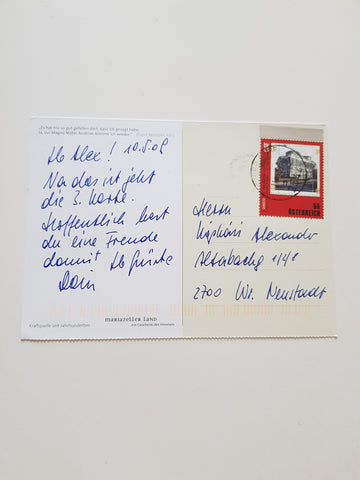 „Es hat mir so gut gefallen dort, dass ich gesagt habe:
Ja, zur Magna Mater Austriae komme ich wieder!“
Lb Alex! 10.5.09
Na das ist jetzt
die 3. Karte.
Hoffentlich hast
du eine Freude
damit Lb Grüße
Herrn
Alexander
2700 Wr. Neustadt
55
ÖSTERREICH
Kraftquelle seit Jahrhunderten
MARIAZELLER LAND
...ein Geschenk des Himmels